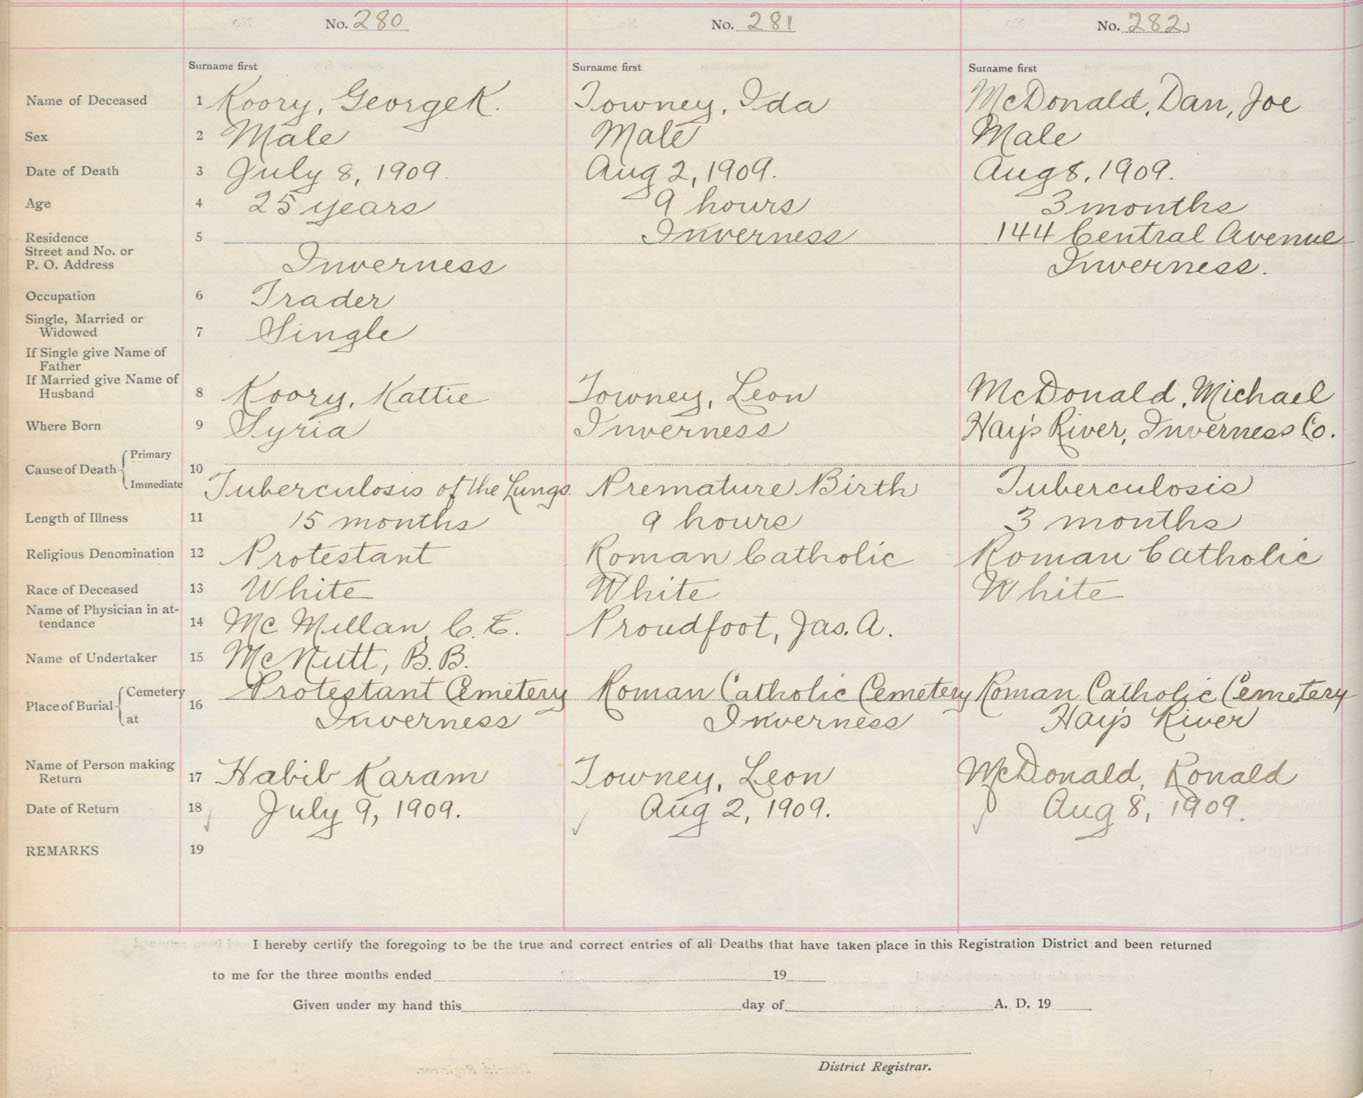 No. 280 No. 281 No. 282
Surname first Surname first Surname first
Name of Deceased 1 Koory, George K. Towney, Ida McDonald, Dan, Joe
Sex 2 Male Male Male
Date of Death 3 July 8, 1909. Aug 2, 1909. Aug 8, 1909.
Age 4 25 years 9 hours 3 months
Residence 5 Inverness 144 Central Avenue
Street and No. or
P. O. Address Inverness Inverness.
Occupation 6 Trader
Single, Married or
Widowed 7 Single
If Single give Name of
Father
If Married give Name of
Husband 8 Koory, Kattie Towney, Leon McDonald, Michael
Where Born 9 Syria Inverness Hay's River, Inverness Co.
Cause of Death Primary
10
Immediate Tuberculosis of the Lungs. Premature Birth Tuberculosis
Length of Illness 11 15 months 9 hours 3 months
Religious Denomination 12 Protestant Roman Catholic Roman Catholic
Race of Deceased 13 White White White
Name of Physician in at-
tendance 14 McMillan, C. E. Proudfoot, Jas. A.
Name of Undertaker 15 McNutt, B. B.
Place of Burial Cemetery 16 Protestant Cemetery Roman Catholic Cemetery Roman Catholic Cemetery
at Inverness Inverness Hay's River
Name of Person making
Return 17 Habib Karam Towney, Leon McDonald, Ronald
Date of Return 18 July 9, 1909. Aug 2, 1909. Aug 8, 1909.
REMARKS 19
I hereby certify the foregoing to be the true and correct entries of all Deaths that have taken place in this Registration District and been returned
to me for the three months ended 19
Given under my hand this day of A. D. 19
District Registrar.